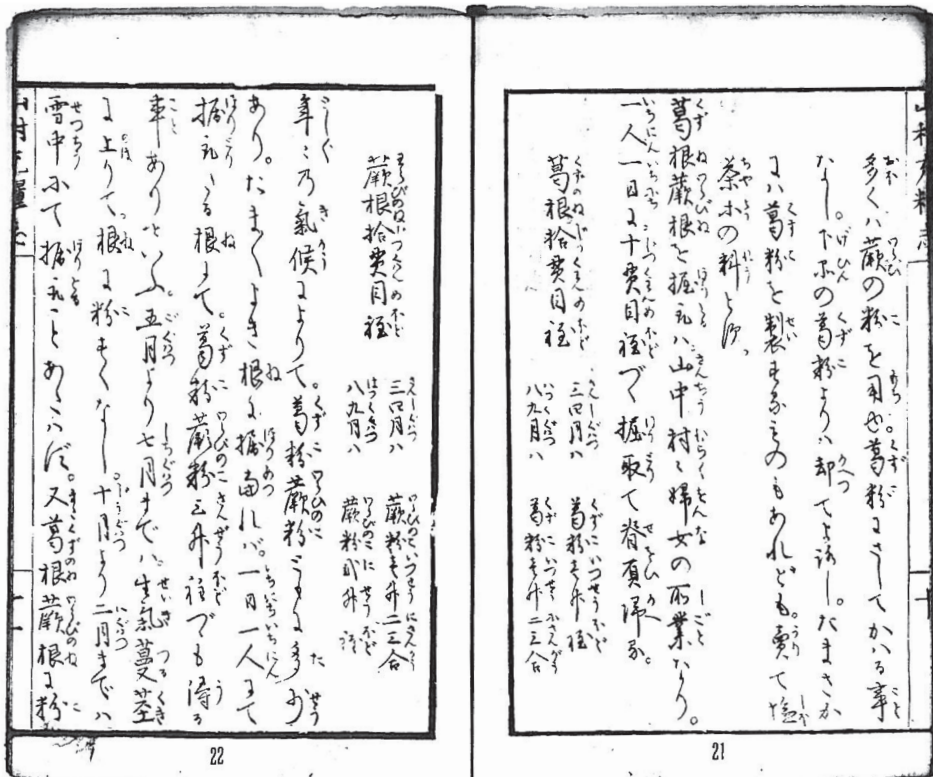 多くハ蕨の粉を用ゆ。葛粉にさしてかハる事
なし。下品の葛粉よりハ却てよろし。たまさか
にハ葛粉を製するものもあれども。賣て塩
茶等の料とす。
葛根蕨根を掘取ハ山中村々婦女の所業なり。
一人一日に十貫目程づゝ掘取て脊負帰る。
葛根拾貫目程
三四月ハ 葛粉壱升程
八九月ハ 葛粉壱升二三合
21
蕨根拾貫目程
三四月ハ 蕨粉壱升二三合
八九月ハ 蕨粉弐升
年々乃氣候によりて。葛粉蕨粉ともに多少
あり。たま〳〵よき根に掘当れバ。一日一人にて
掘取たる根にて。葛粉蕨粉三升程づゝも得る
事ありといふ。五月より七月まで八。生氣蔓茎
に上りて。根に粉すくなし。十月より二月までハ
雪中にて掘取ことあたハず。又葛根蕨根に粉
22